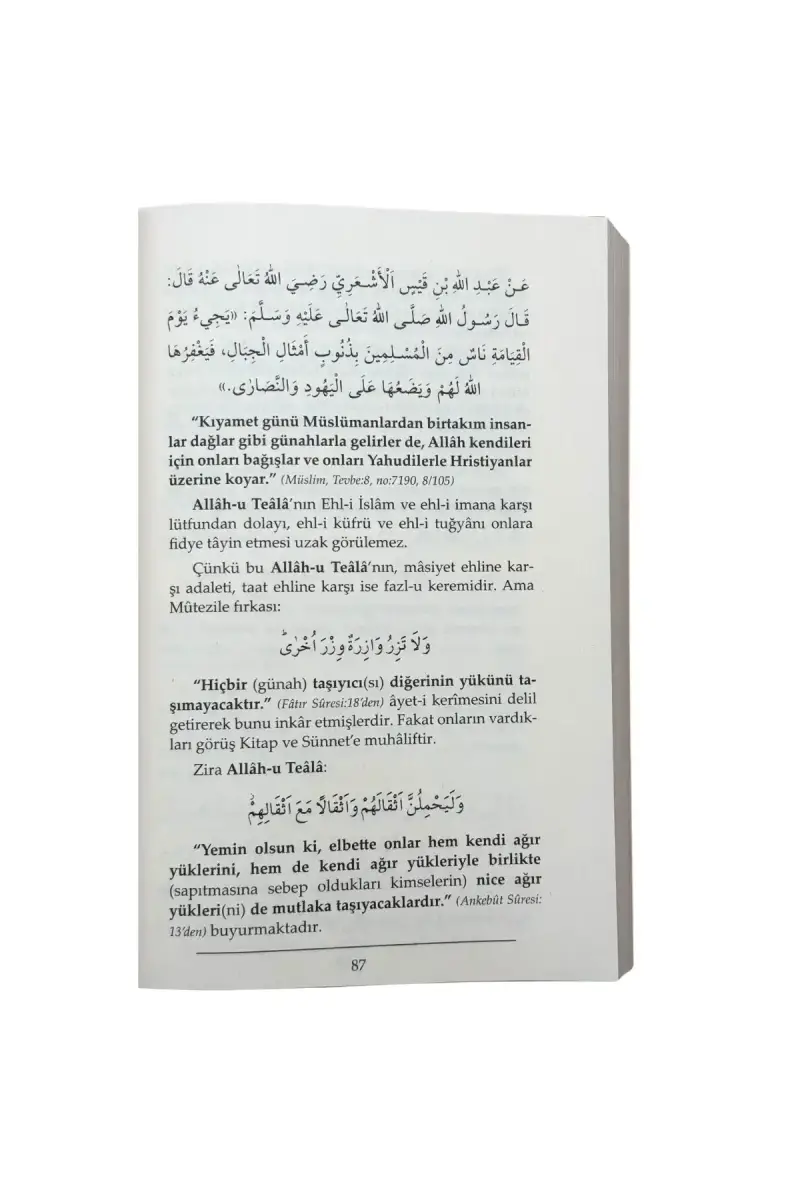 عَنْ عَبْدِ اللهِ بْنِ قَيْسٍ اَلْأَشْعَرِيِّ رَضِيَ اللهُ تَعَالٰى عَنْهُ قَالَ:
قَالَ رَسُولُ اللهِ صَلَّى اللهُ تَعَالٰى عَلَيْهِ وَسَلَّمَ: «يَجِيءُ يَوْمَ
الْقِيَامَةِ نَاسٌ مِنَ الْمُسْلِمِينَ بِذُنُوبٍ أَمْثَالِ الْجِبَالِ، فَيَغْفِرُهَا
اللهُ لَهُمْ وَيَضَعُهَا عَلَى الْيَهُودِ وَالنَّصَارٰى.»
“Kıyamet günü Müslümanlardan birtakım insan-
lar dağlar gibi günahlarla gelirler de, Allâh kendileri
için onları bağışlar ve onları Yahudilerle Hristiyanlar
üzerine koyar.” (Müslim, Tevbe:8, no:7190, 8/105)
Allâh-u Teâlâ’nın Ehl-i İslâm ve ehl-i imana karşı
lütfundan dolayı, ehl-i küfrü ve ehl-i tuğyânı onlara
fidye tâyin etmesi uzak görülemez.
Çünkü bu Allâh-u Teâlâ’nın, mâsiyet ehline kar-
şı adaleti, taat ehline karşı ise fazl-u keremidir. Ama
Mûtezile fırkası:
وَلَا تَزِرُ وَازِرَةٌ وِزْرَ اُخْرٰىۜ
“Hiçbir (günah) taşıyıcı(sı) diğerinin yükünü ta-
şımayacaktır.” (Fâtır Sûresi:18’den) âyet-i kerîmesini delil
getirerek bunu inkâr etmişlerdir. Fakat onların vardık-
ları görüş Kitap ve Sünnet’e muhâliftir.
Zira Allâh-u Teâlâ:
وَلَيَحْمِلُنَّ اَثْقَالَهُمْ وَاَثْقَالًا مَعَ اَثْقَالِهِمْۘ
“Yemin olsun ki, elbette onlar hem kendi ağır
yüklerini, hem de kendi ağır yükleriyle birlikte
(sapıtmasına sebep oldukları kimselerin) nice ağır
yükleri(ni) de mutlaka taşıyacaklardır.” (Ankebût Sûresi:
13’den) buyurmaktadır.
87